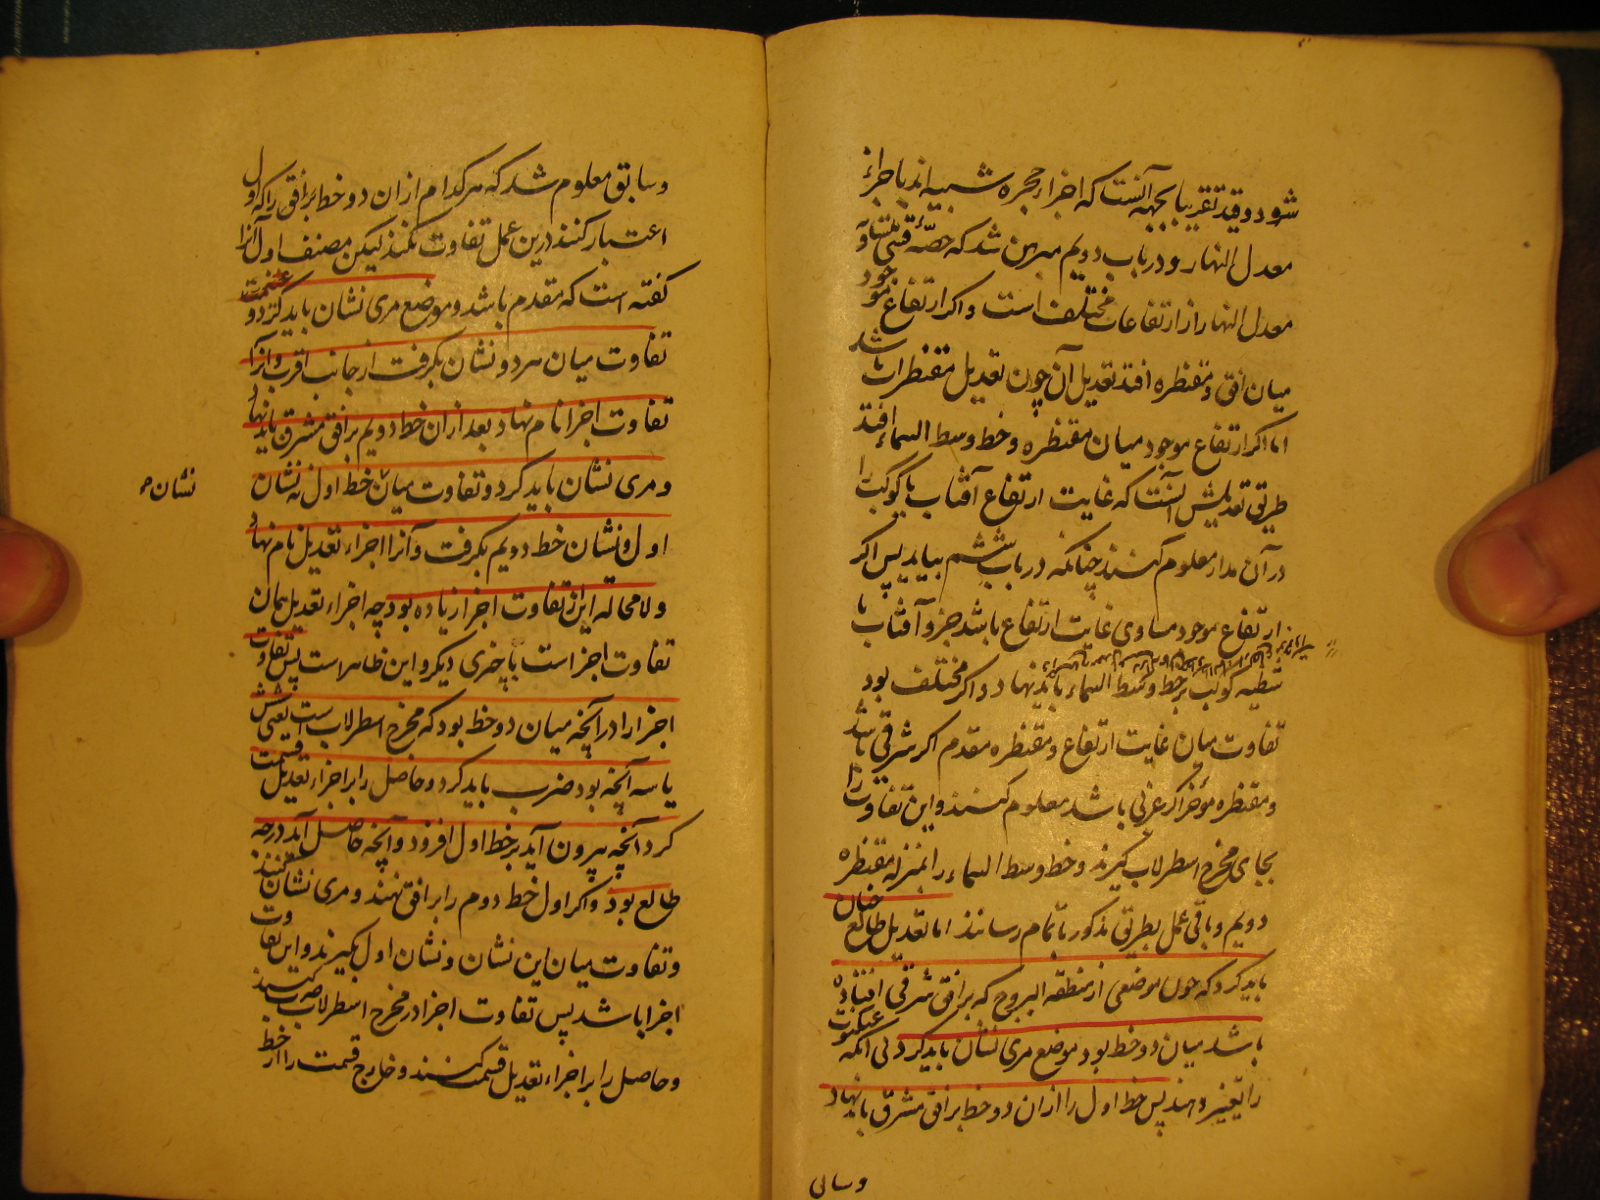 شود و قید تقریبا بجهه آنست که اجزاء حجره شبیه اند باجزاء
معدل النهار و در باب دویم مبرهن شد که حصهٔ قسی متساویه
معدل النهار از ارتفاعات مختلف است و اکر ارتفاع موجود
میان افق و مقنطره افتد تعدیل آن چون تعدیل مقنطرات باشد
اما اکر ارتفاع موجود میان مقنطره و خط وسط السماء افتد
طریق تعدیلش آنست که غایت ارتفاع آفتاب یا کوکب را
در آن مدار معلوم کنند چنانکه در باب ششم بیاید پس اکر
ارتفاع موجود مساوی غایت ارتفاع باشد جزو آفتاب یا
شظیه کوکب بر خط وسط السماء باید نهاد و اکر مختلف بود
تفاوت میان غایت ارتفاع و مقنطره مقدم اکر شرقی باشد
و مقنطره مؤخر اکر غربی باشد معلوم کنند و این تفاوت را
بجای مخرج اسطرلاب کیرند و خط وسط السماء را بمنزله مقنطره
دویم و باقی عمل بطریق مذکور باتمام رسانند اما تعدیل طالع چنان
باید کرد که چون موضعی از منطقه البروج که بر افق شرقی افتاده
باشد میان دو خط بود موضع مری نشان باید کرد بی آنکه عنکبوت
را تغییر دهند پس خط اول را ازان دو خط بر افق مشرق باید نهاد
و سابق
و سابق معلوم شد که هر کدام ازان دو خط بر افق را که اول
اعتبار کنند درین عمل تفاوت نکند لیکن مصنف اول آنرا
کفته است که مقدم باشد و موضع مری نشان باید کرد و
تفاوت میان هر دو نشان بکرفت از جانب اقرب و آنرا
تفاوت اجزا نام نهاد بعد ازان خط دویم بر افق مشرق باید نهاد
و مری نشان باید کرد و تفاوت میان خط اول نه نشان
نشان م
اول و نشان خط دویم بکرفت و آنرا اجزاء تعدیل نام نهاد
و لا محاله این از تفاوت اجزا زیاده بود چه اجزاء تعدیل همان
تفاوت اجزا است با چیزی دیکر و این ظاهر است پس تفاوت
اجزا را در آنچه میان دو خط بود که مخرج اسطرلاب است یعنی شش
یا سه آنچه بود ضرب باید کرد و حاصل را بر اجزاء تعدیل قسمت
کرد آنچه بیرون آید بر خط اول افزود و آنچه حاصل آید درجه
طالع بود و اکر اول خط دوم را بر افق نهند و مری نشان کنند
و تفاوت میان این نشان و نشان اول بکیرند و این تفاوت
اجزا باشد پس تفاوت اجزا در مخرج اسطرلاب ضرب کنند
و حاصل را بر اجزاء تعدیل قسمت کنند و خارج قسمت را از خط